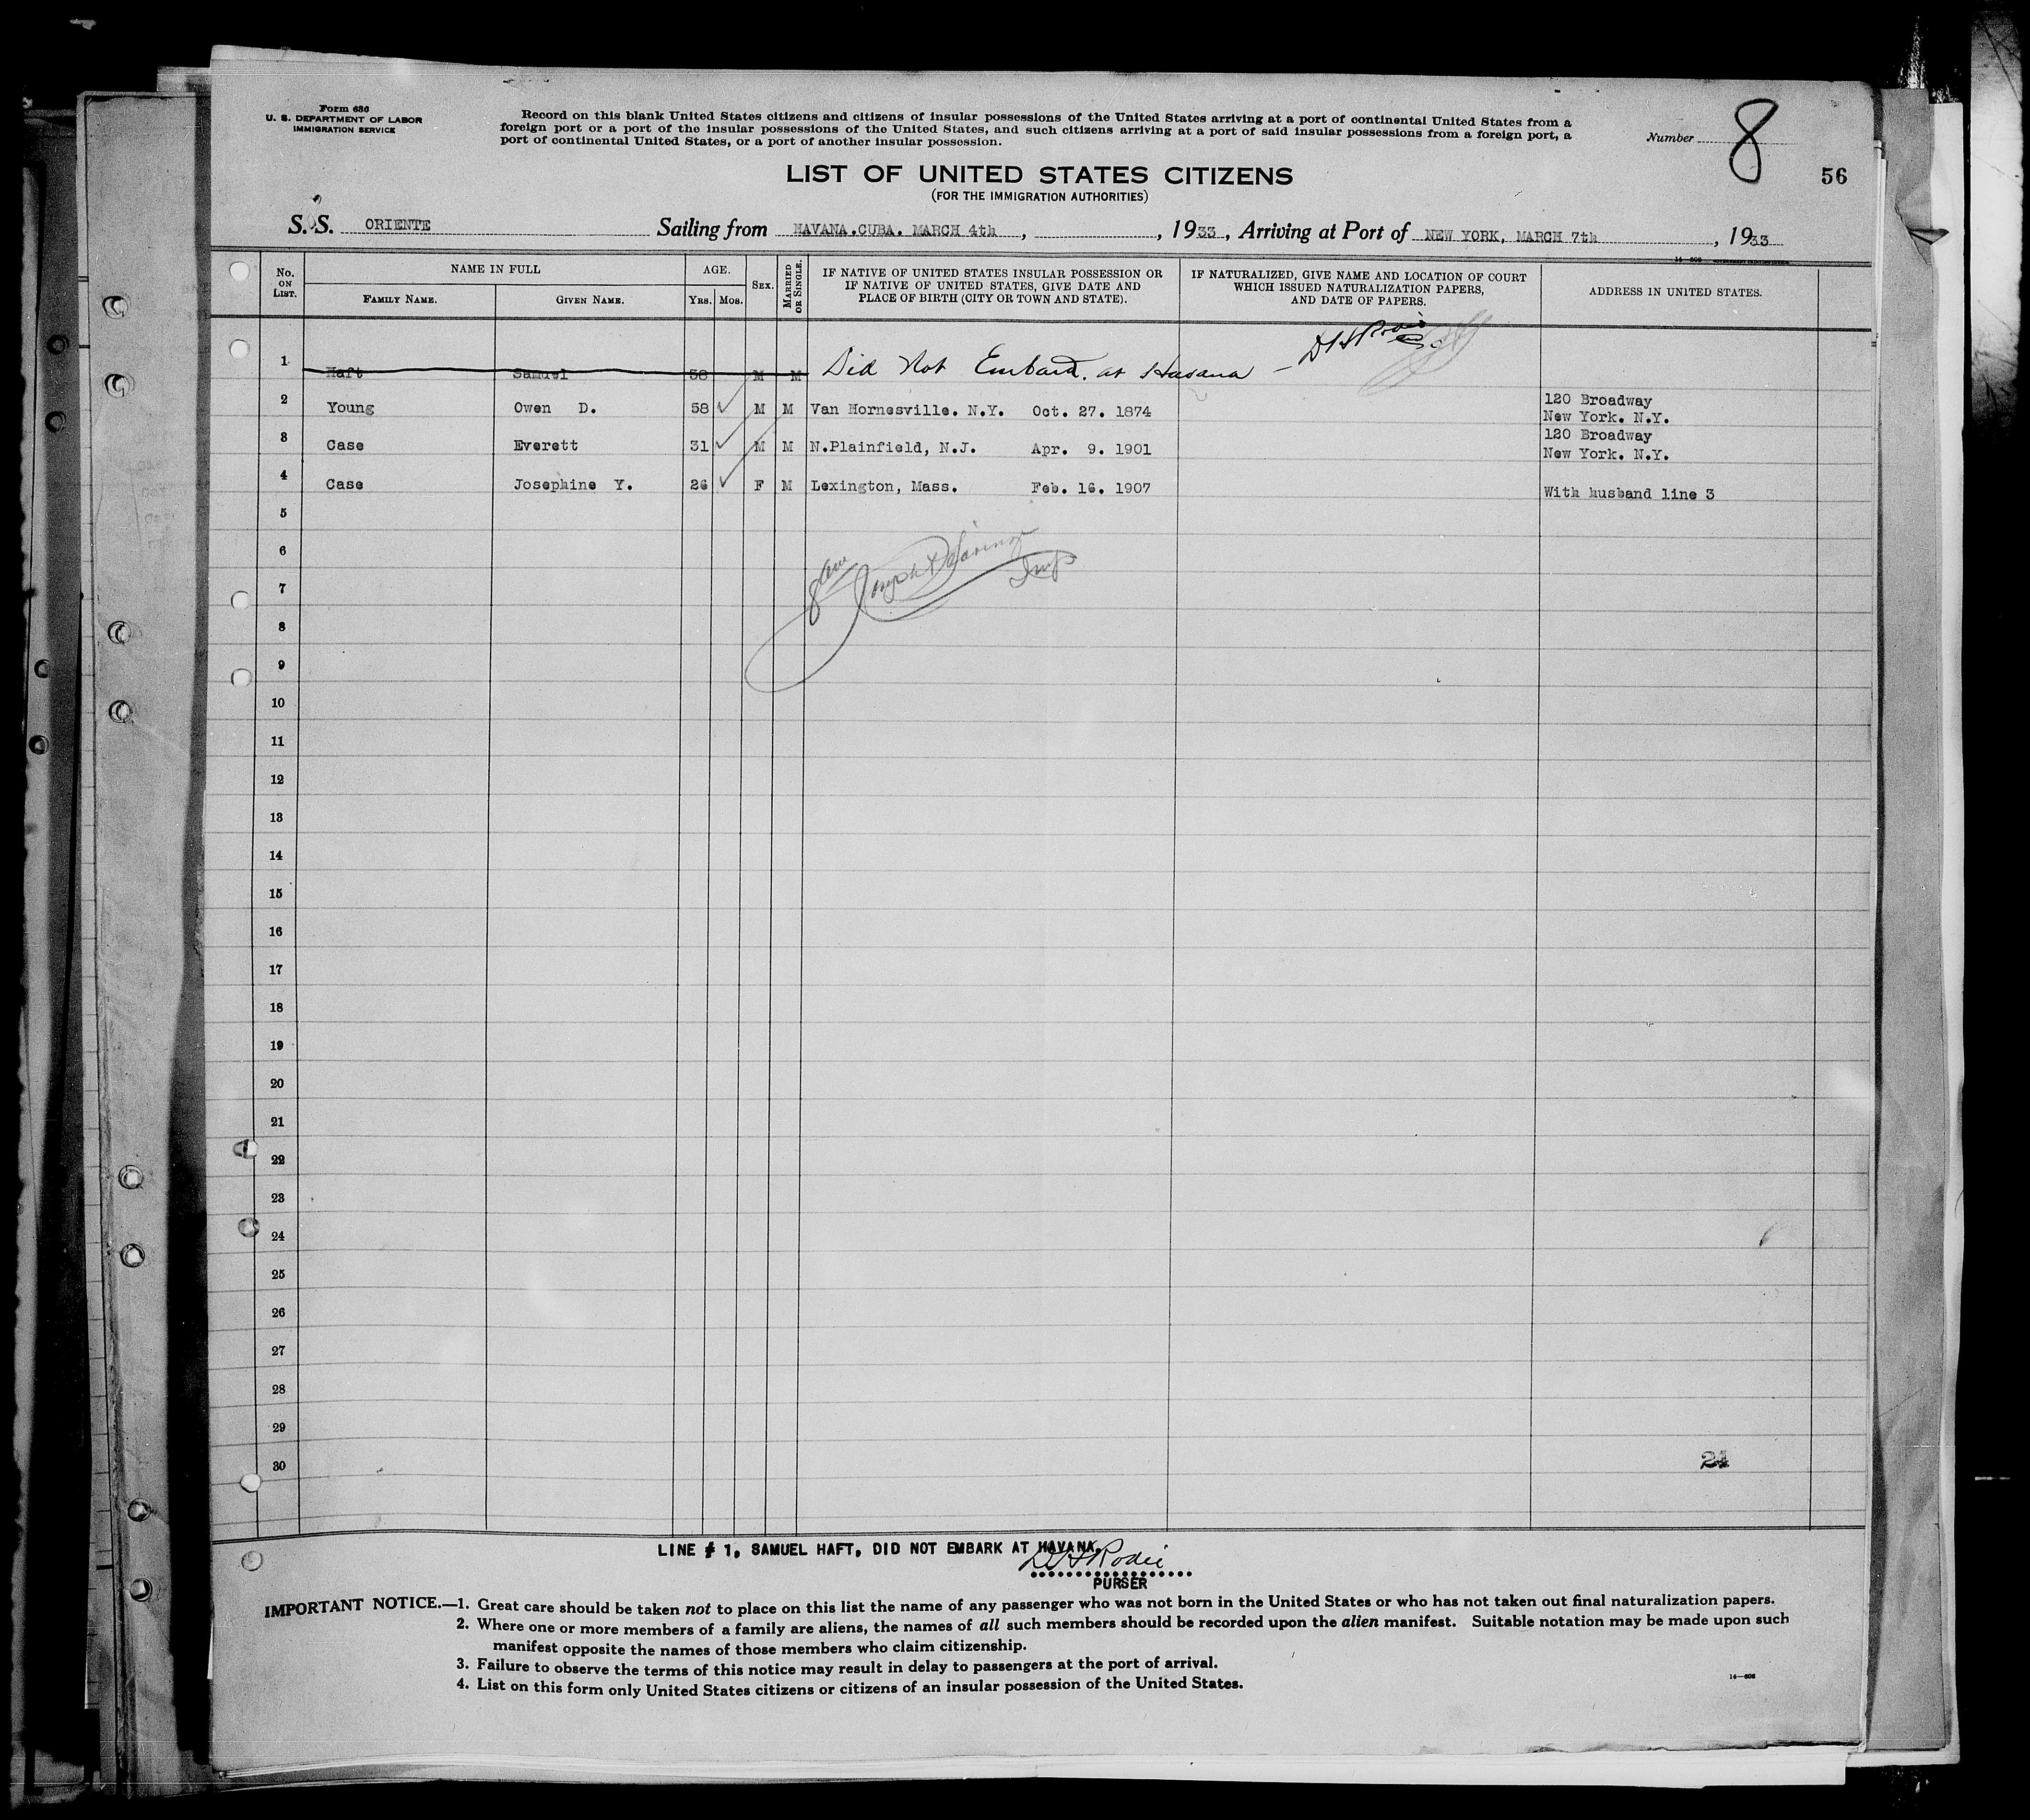 Form 630
U. S. DEPARTMENT OF LABOR
IMMIGRATION SERVICE
Record on this blank United States citizens and citizens of insular possessions of the United States arriving at a port of continental United States from a
foreign port or a port of the insular possessions of the United States, and such citizens arriving at a port of said insular possessions from a foreign port, a
port of continental United States, or a port of another insular possession.
Number 8
56
LIST OF UNITED STATES CITIZENS
(FOR THE IMMIGRATION AUTHORITIES)
S. S. ORIENTE Sailing from HAVANA.CUBA. MARCH 4th , , 1933 , Arriving at Port of NEW YORK, MARCH 7th , 1933
No. ON LIST. NAME IN FULL FAMILY NAME. GIVEN NAME. AGE. YRS. MOS. SEX. MARRIED OR SINGLE.
IF NATIVE OF UNITED STATES INSULAR POSSESSION OR
IF NATIVE OF UNITED STATES, GIVE DATE AND
PLACE OF BIRTH (CITY OR TOWN AND STATE).
IF NATURALIZED, GIVE NAME AND LOCATION OF COURT
WHICH ISSUED NATURALIZATION PAPERS,
AND DATE OF PAPERS.
ADDRESS IN UNITED STATES.
1 Haft Samuel 58 M M Did Not Embark. at Havana - D H Rodie
2 Young Owen D. 58 M M Van Hornesville. N.Y. Oct. 27. 1874 120 Broadway
New York. N.Y.
3 Case Everett 31 M M N.Plainfield, N.J. Apr. 9. 1901 120 Broadway
New York. N.Y.
4 Case Josephine Y. 26 F M Lexington, Mass. Feb. 16. 1907 With husband line 3
5
6
7
8
9
10
11
12
13
14
15
16
17
18
19
20
21
22
23
24
25
26
27
28
29
30
21
LINE # 1, SAMUEL HAFT, DID NOT EMBARK AT HAVANA.
D H Rodie
PURSER
IMPORTANT NOTICE.—1. Great care should be taken not to place on this list the name of any passenger who was not born in the United States or who has not taken out final naturalization papers.
2. Where one or more members of a family are aliens, the names of all such members should be recorded upon the alien manifest. Suitable notation may be made upon such
manifest opposite the names of those members who claim citizenship.
3. Failure to observe the terms of this notice may result in delay to passengers at the port of arrival.
4. List on this form only United States citizens or citizens of an insular possession of the United States.
14—608